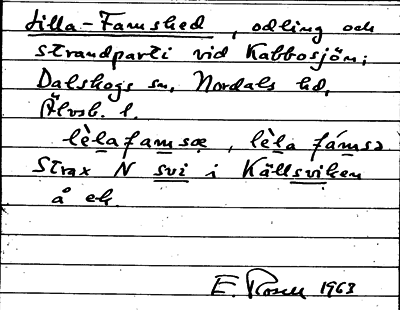 Lilla-Famshed, odling och
strandparti vid Kabbosjön;
Dalskogs sn, Nordals hd,
Älvsb. l.
lèlafamsæ, lèla fámsə
Strax N svi i Källsviken
å ek.
E. Rosell 1963